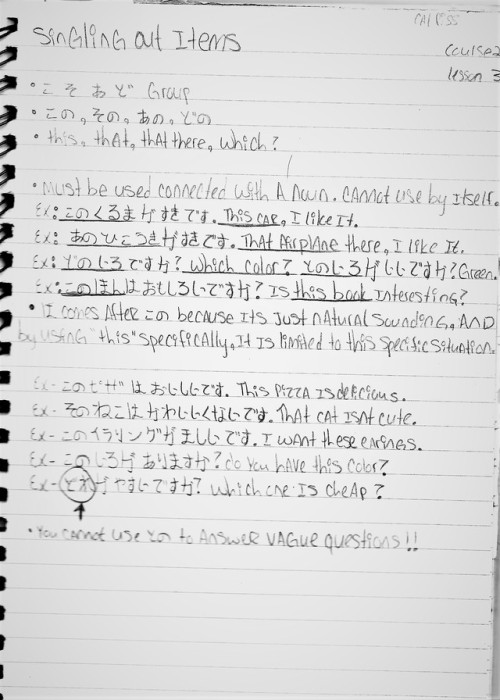 Singling out Items
Course 2
lesson 3
・こ そ あ ど Group
・この, その, あの, どの
・this, that, that there, which?
・Must be used connected with A noun. Cannot use by Itself.
Ex: このくるまがすきです. This car, I like It.
Ex: あのひこうきがすきです. That Airplane there, I like It.
Ex: どのいろですか? Which color? どのいろがいいですか? Green.
Ex: このほんはおもしろいですか? Is this book Interesting?
・は comes After この because Its Just natural sounding, AND
by using "this" specifically, It Is limited to this specific situation.
Ex- このピザはおいしいです. This Pizza Is delicious.
Ex- そのねこはかわいくないです. That cat Isnt cute.
Ex- このイヤリングがほしいです. I want these earings.
Ex- このいろがありますか? do you have this color?
Ex- どれがやすいですか? Which one Is cheap?
・You cannot use この to Answer vague questions!!